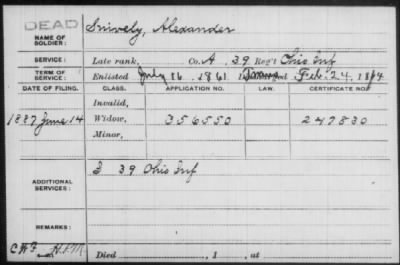 DEAD
NAME OF SOLDIER: Snively, Alexander
SERVICE: Late rank, Co. A, 39 Reg't Ohio Inf
TERM OF SERVICE: Enlisted July 16, 1861 Feb. 24, 1864
DATE OF FILING. CLASS. APPLICATION NO. LAW. CERTIFICATE NO.
Invalid,
1887 June 14 Widow, 356550 247830
Minor,
ADDITIONAL SERVICES: I 39 Ohio Inf
REMARKS:
Died , 1 , at